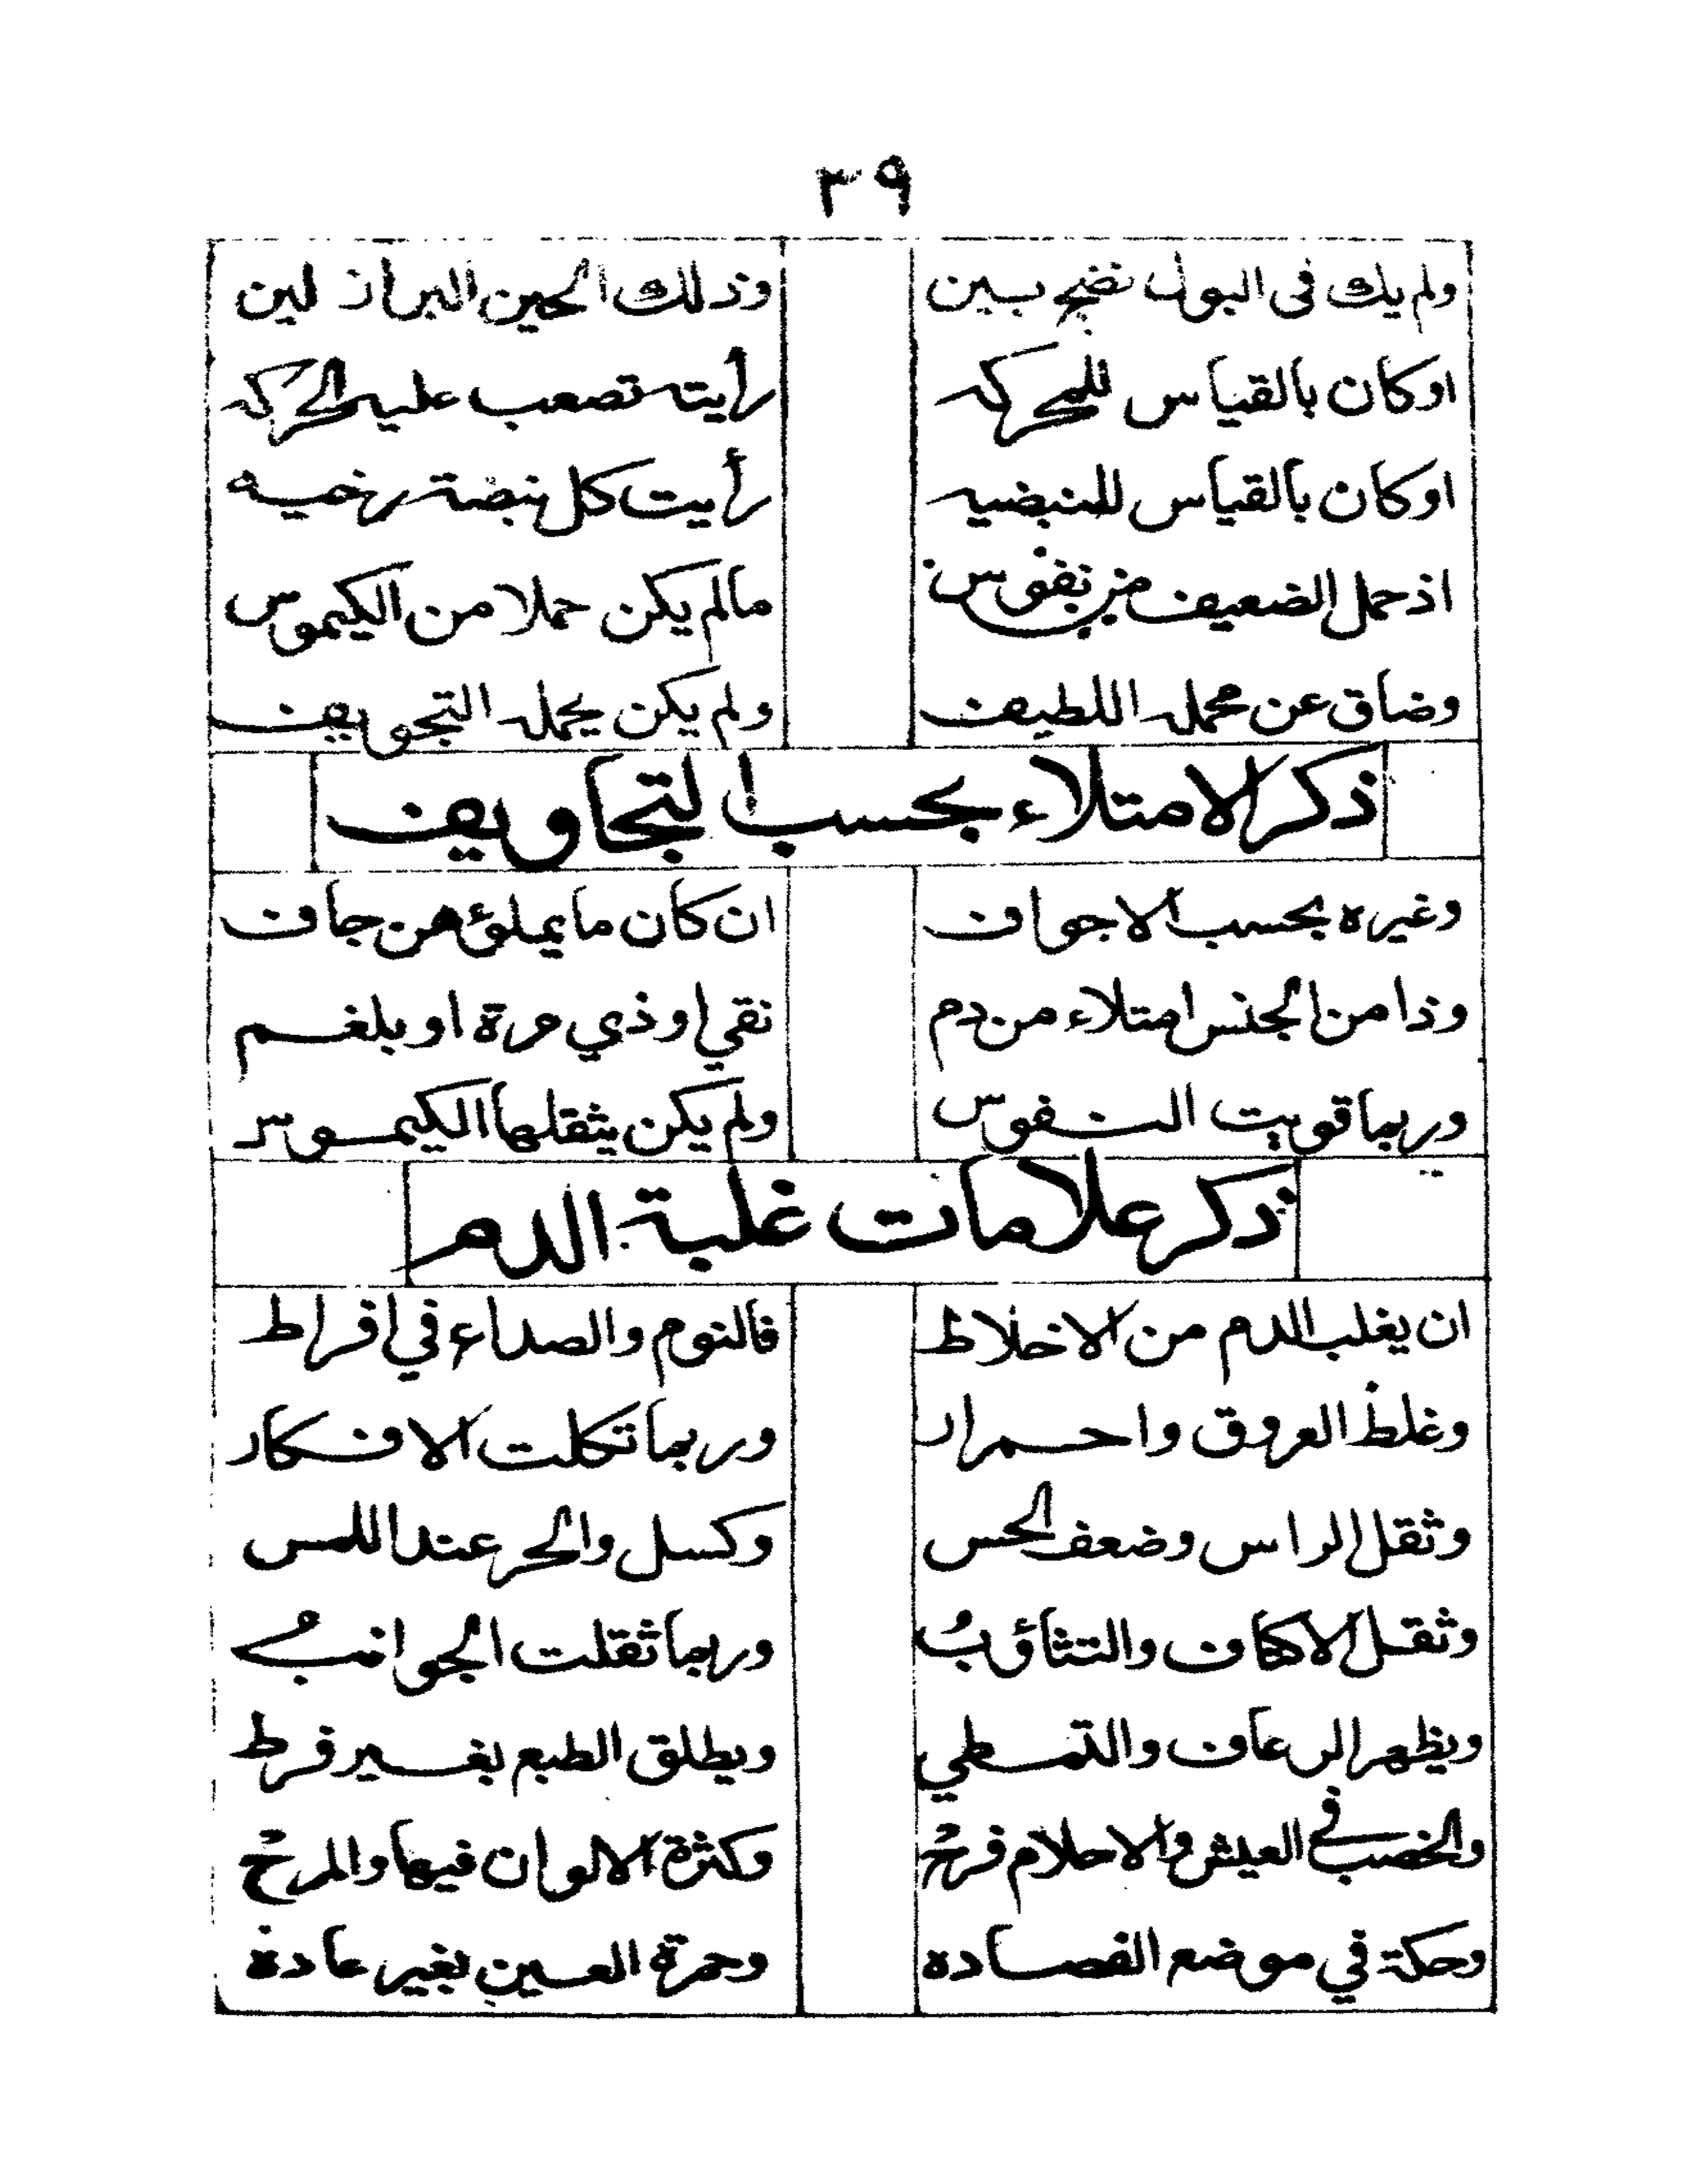 ٣٩
ولم يك فى البول نضج بين وذلك الحين البراز لين
او كان بالقياس للمحركه رأيته تصعب عليه الحركه
او كان بالقياس للنبضيه رأيت كل نبضة رخيه
اذ حمل الضعيف من نفوس مالم يكن حملا من الكيموس
وضاق عن محمله اللطيف ولم يكن يحمله التجويف
ذكر الامتلاء بحسب التجاويف
وغيره بحسب الاجواف ان كان ما يملؤهن جاف
وذا من الجنس امتلاء من دم نقي او ذي مرة او بلغم
وربما قويت النفوس ولم يكن يثقلها الكيموس
ذكر علامات غلبة الدم
ان يغلب الدم من الاخلاط فالنوم والصداع في افراط
وغلظ العروق واحمرار وربما تكلت الافكار
وثقل الراس وضعف الحس وكسل والحر عند اللمس
وثقل الاكتاف والتثاؤبُ وربما ثقلت الجوانبُ
ويظهر الرعاف والتمطي ويطلق الطبع بغير فرط
والخصب في العيش والاحلام فرحُ وكثرة الالوان فيها والمرحُ
وحكة في موضع الفصاده وحمرة العين بغير عادة